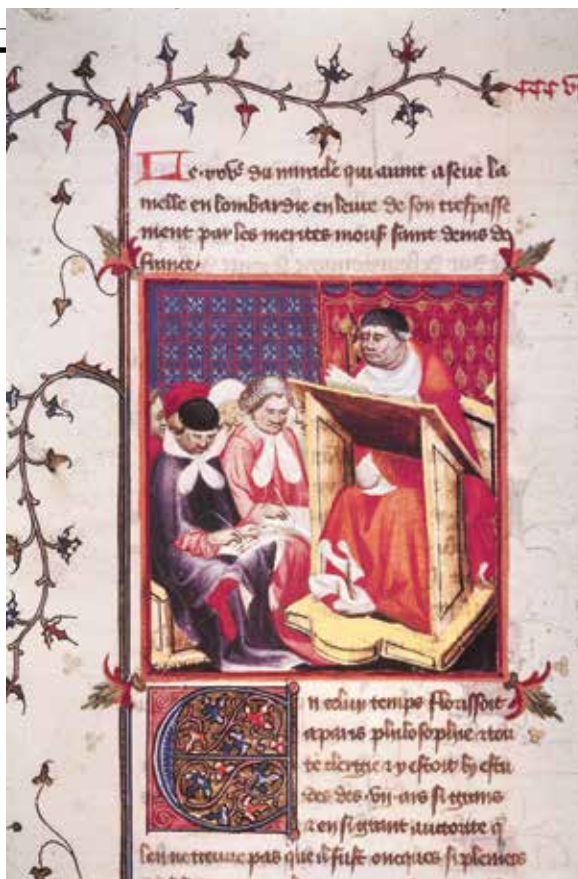 Le .xxv.e du miracle qui avint a seue la
melle en lombardie en leure de son trespasse
ment par les merites mons saint denis de
france.
En celui temps florissoit
a paris philosophie et tou
te clergie et y estoit li estu
des des .vii. ars si grans
et en si grant autorite q
len ne treuve pas que il fust oncques si pleniers